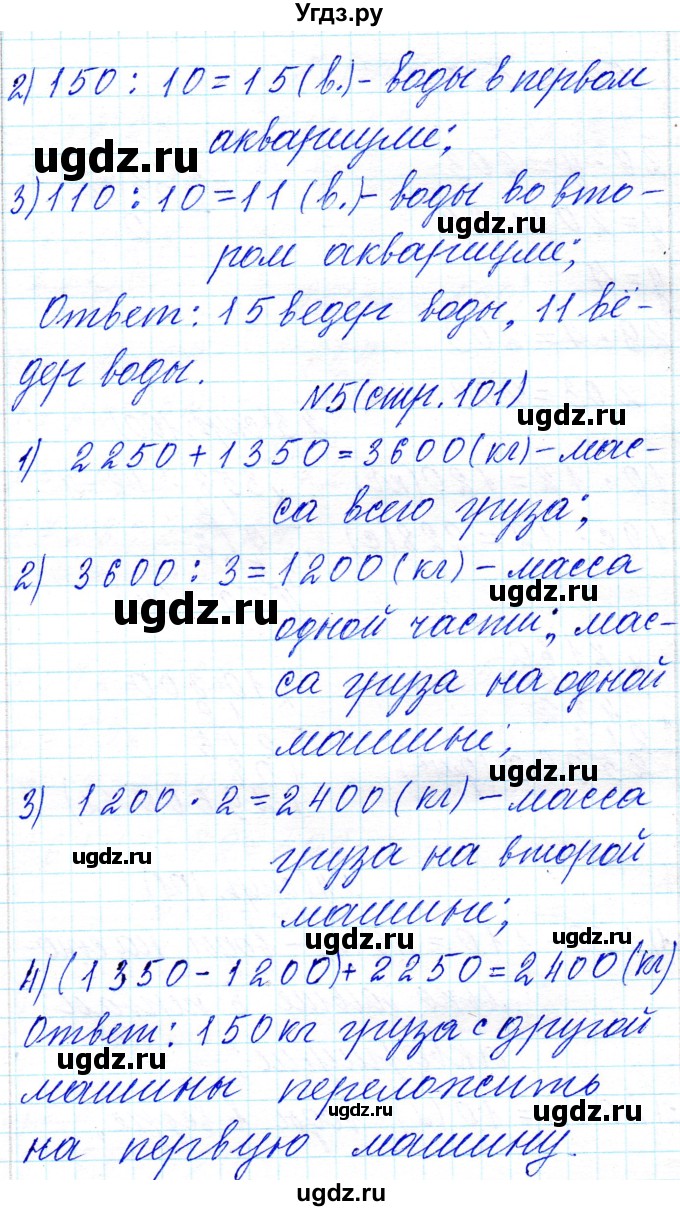 Угдз.ру
2) 150 : 10 = 15 (в.) - воды в первом
аквариуме;
ugdz.ru
3) 110 : 10 = 11 (в.) - воды во вто-
ugdz.ru
ром аквариуме;
Ответ: 15 ведер воды, 11 вё-
дер воды.
N5 (стр. 101)
ugdz.ru
1) 2250 + 1350 = 3600 (кг) - мас-
са всего груза;
2) 3600 : 3 = 1200 (кг) - масса
ugdz.ru
одной части;, мас-
са груза на одной
машине;
ugdz.ru
3) 1200 · 2 = 2400 (кг) - масса
ugdz.ru
груза на второй
машине;
ugdz.ru
ugdz.ru
4) (1350 - 1200) + 2250 = 2400 (кг)
Ответ: 150 кг груза с другой
ugdz.ru
машины переложить
ugdz.ru
ugdz.ru
на первую машину.
ugdz.ru